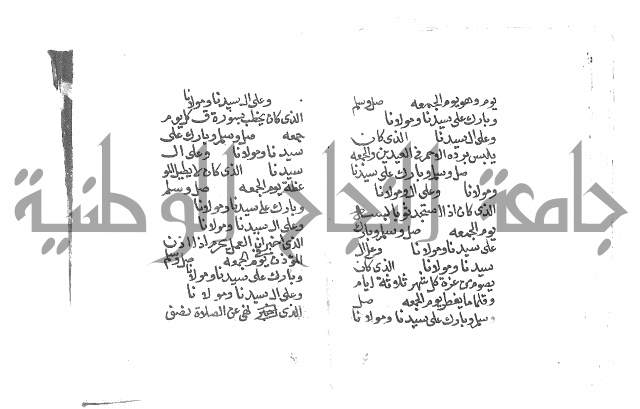 يوم وهو يوم الجمعه صل وسلم
وبارك على سيدنا ومولانا
وعلى ال سيدنا الذى كان
يلبس برده الاحمر فى العيدين والجمعه
صل وسلم وبارك على سيدنا
ومولانا وعلى ال ومولانا
الذى كان اذا استجد ثوبا لبسه
يوم الجمعه صل وسلم وبارك
على سيدنا ومولانا وعلى ال
سيدنا ومولانا الذى كان
يصوم من غرة كل شهر ثلاثة ايام
وقلما ما يفطر يوم الجمعه صل
وسلم وبارك على سيدنا ومولانا
وعلى ال سيدنا ومولانا
الذى كان يخطب بسورة ق كل يوم
جمعه صل وسلم وبارك على
سيدنا ومولانا وعلى ال
سيدنا الذى كان لا يطيل المو
عظة يوم الجمعه صل وسلم
وبارك على سيدنا ومولانا
وعلى ال سيدنا ومولانا
الذى اخبر ان العمل يحرم اذا اذن
المؤذن يوم الجمعه صل وسلم
وبارك على سيدنا ومولانا
وعلى ال سيدنا ومولانا
الذى نهى عن الصلاة نصف
جامعة النجاح الوطنية